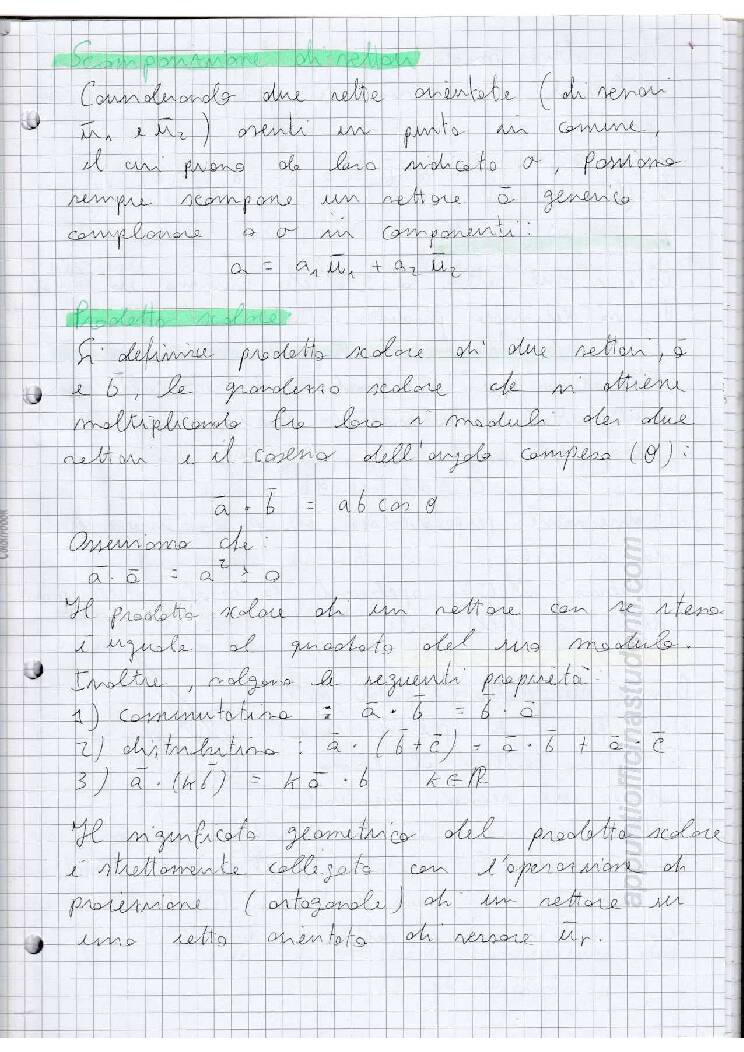 Scomposizione di vettori
Considerando due rette orientate (di versori
ū₁ e ū₂) aventi un punto in comune,
il cui piano da loro indicato σ, possiamo
sempre scomporre un vettore ā generico
complanare a σ in componenti:
a = a₁ ū₁ + a₂ ū₂
Prodotto scalare
Si definisce prodotto scalare di due vettori, ā
e b̄, la grandezza scalare che si ottiene
moltiplicando fra loro i moduli dei due
vettori e il coseno dell'angolo compreso (θ):
ā · b̄ = ab cos θ
Osserviamo che:
ā · ā = a² ≥ 0
Il prodotto scalare di un vettore con se stesso
è uguale al quadrato del suo modulo.
Inoltre, valgono le seguenti proprietà:
1) commutativa : ā · b̄ = b̄ · ā
2) distributiva : ā · (b̄ + c̄) = ā · b̄ + ā · c̄
3) ā · (k b̄) = k ā · b k ∈ ℝ
Il significato geometrico del prodotto scalare
è strettamente collegato con l'operazione di
proiezione (ortogonale) di un vettore su
una retta orientata di versore ūr.